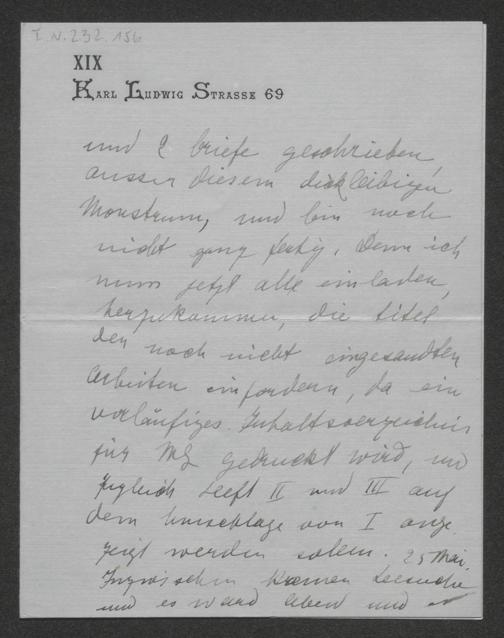 I.N. 232.156
XIX
KARL LUDWIG STRASSE 69
und 2 briefe geschrieben,
ausser diesem dickleibigen
Monstrum, und bin noch
nicht ganz fertig. Denn ich
muss jetzt alle einladen,
herzukommen, die titel
der noch nicht eingesandten
Arbeiten einfordern, da ein
vorläufiges Inhaltsverzeichnis
für gedruckt wird, und
zugleich Heft II und III auf
dem Umschlage von I ange
zeigt werden sollen. 25 Mai.
Inzwischen kamen besuche
und es ward abend und